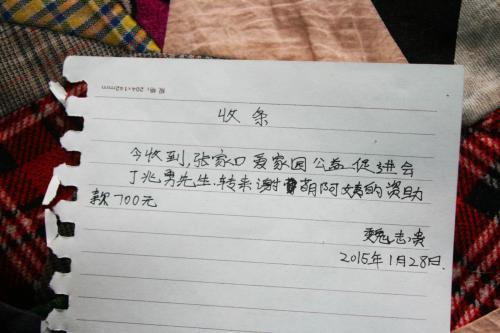 规格:204×142mm
收条
今收到,张家口爱家园公益促进会
丁兆勇先生.转来谢萌阿姨的资助
款700元
魏志贵
2015年1月28日.